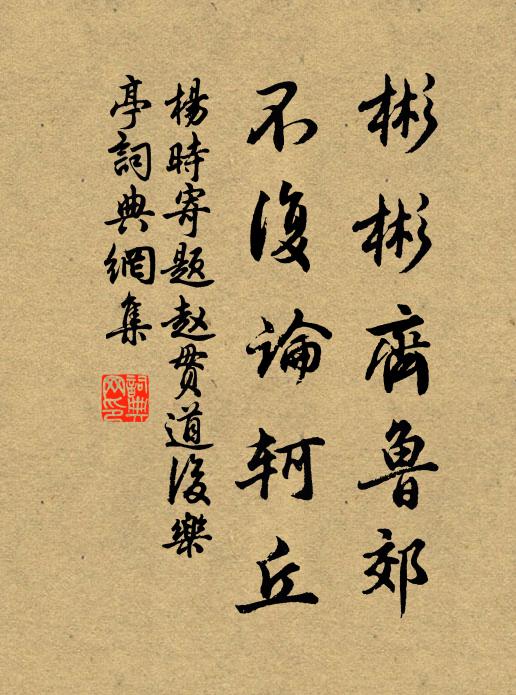 彬彬齊魯郊
不復論軻丘
楊時寄題赵貫道後樂
亭詞典網集
詞典
网印